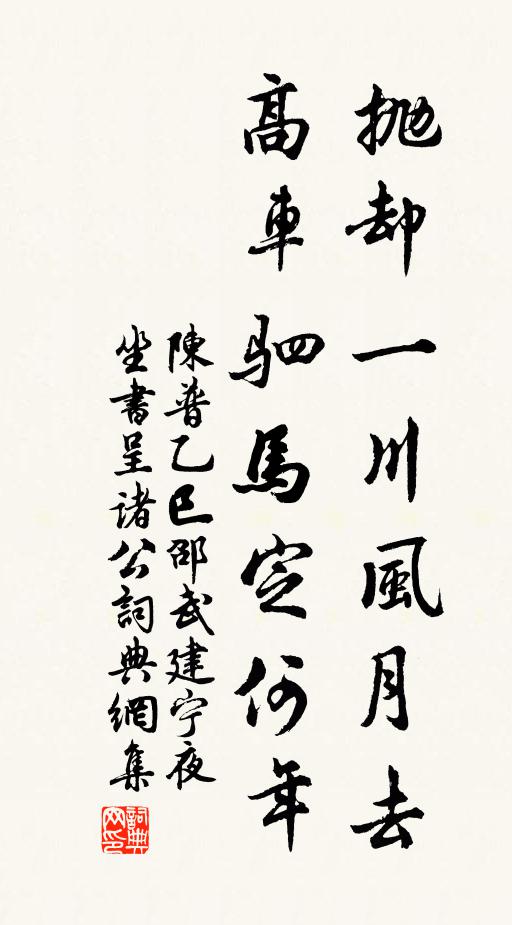 抛却一川風月去
高車駟馬定何年
陳普乙巳邵武建宁夜
坐書呈诸公詞典網集
詞典
网印